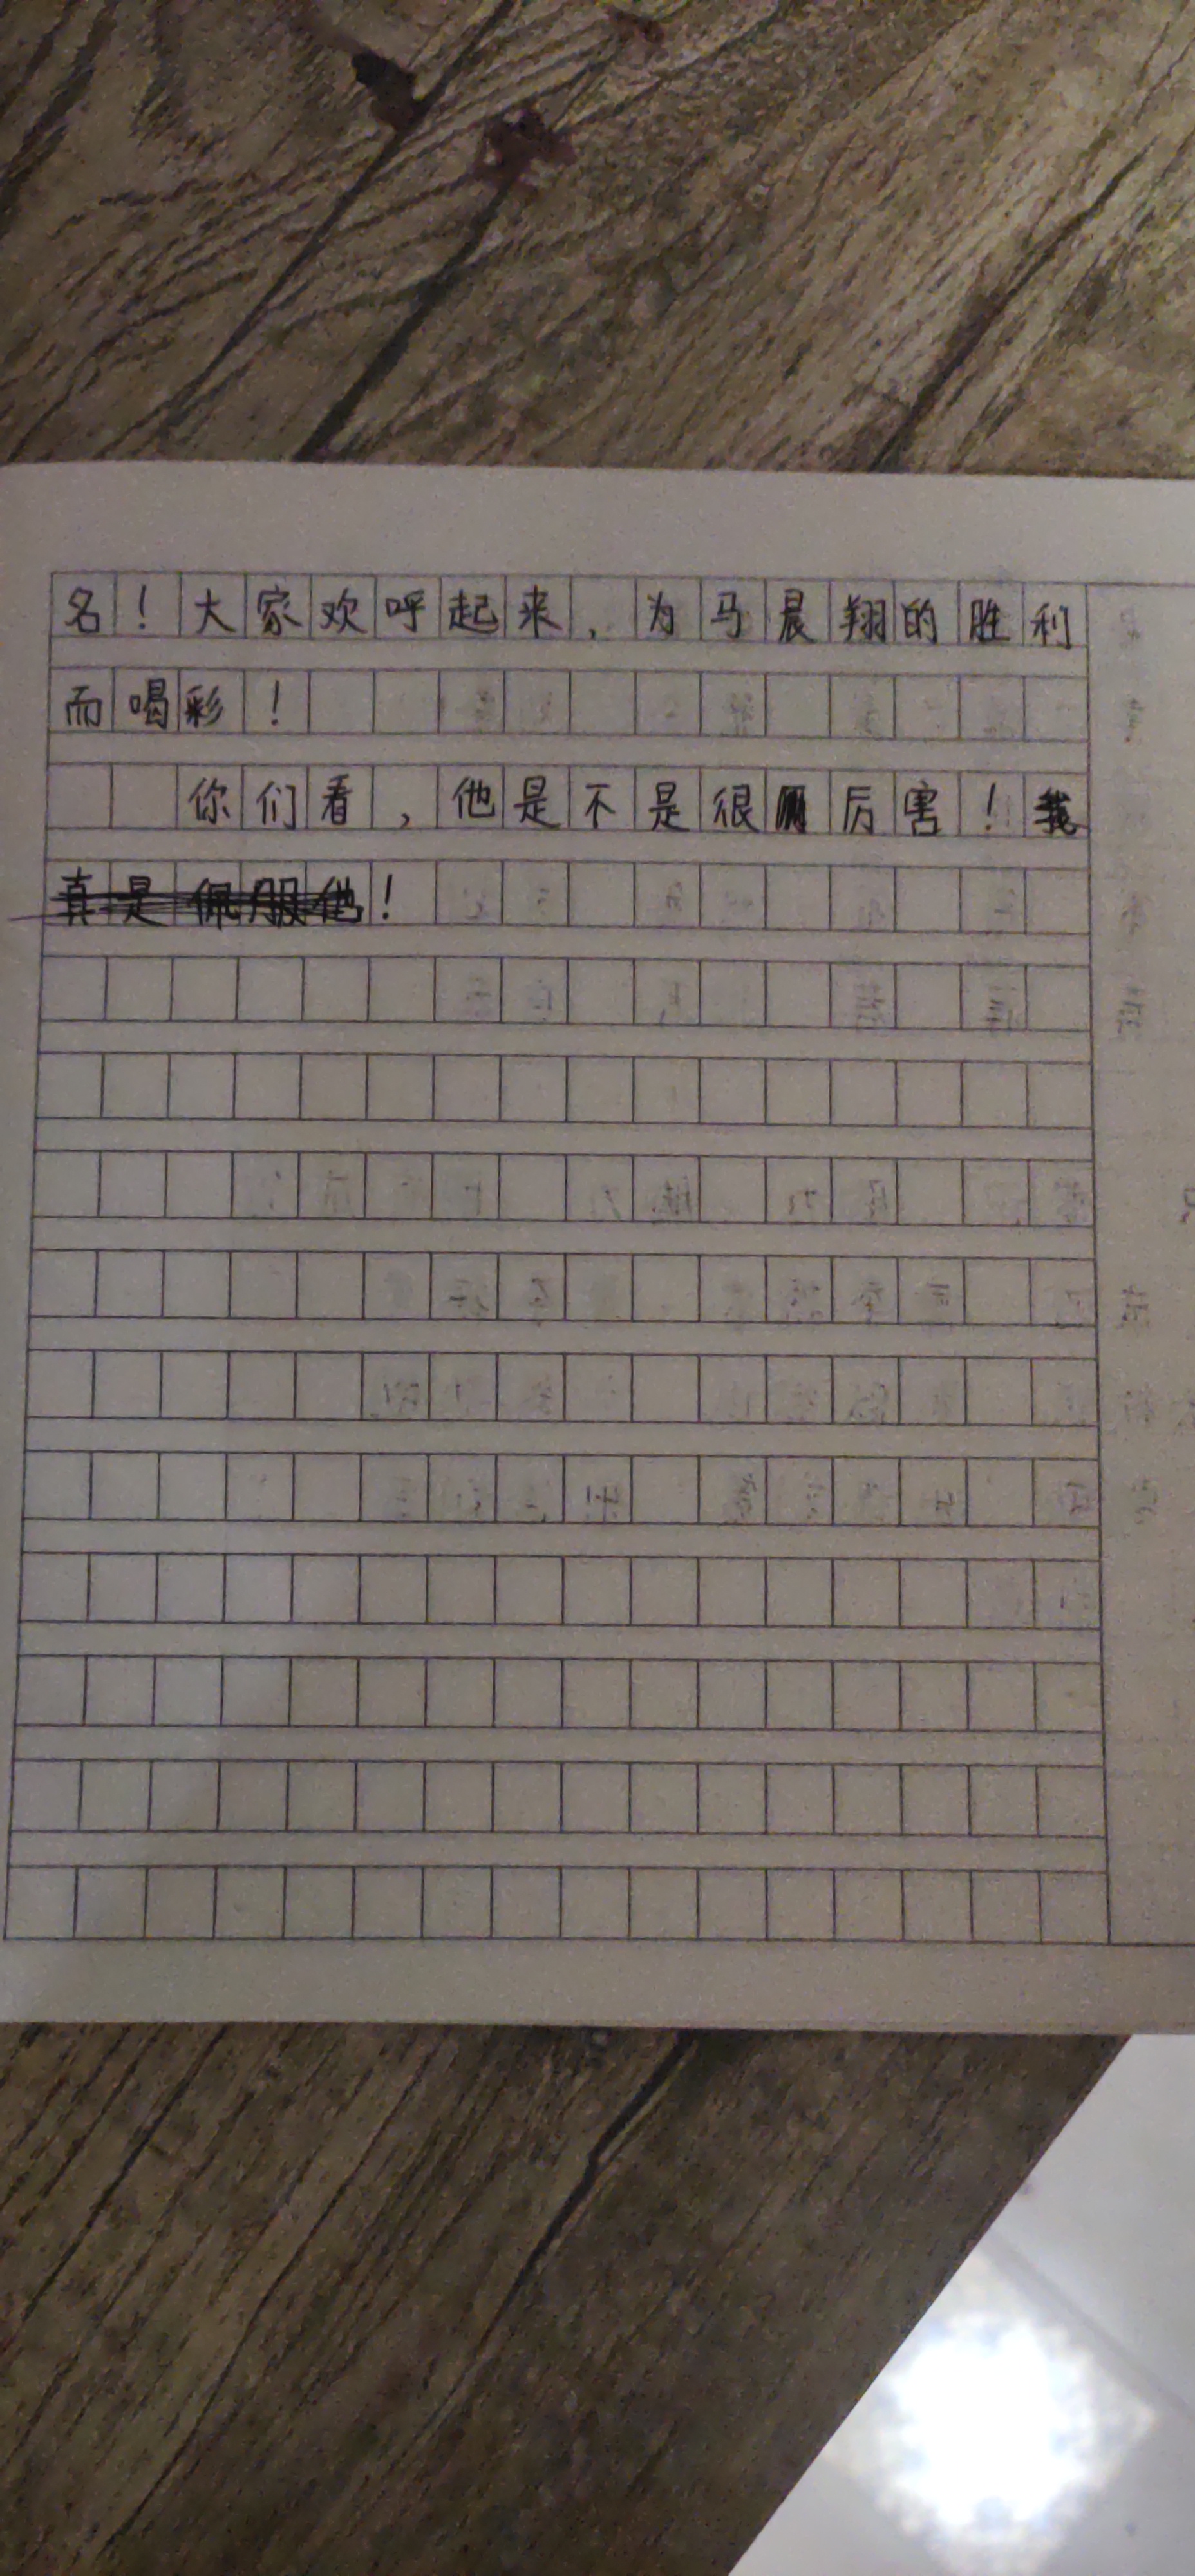 名！大家欢呼起来，为马晨翔的胜利
而喝彩！
你们看，他是不是很厉害！我
真是佩服他！